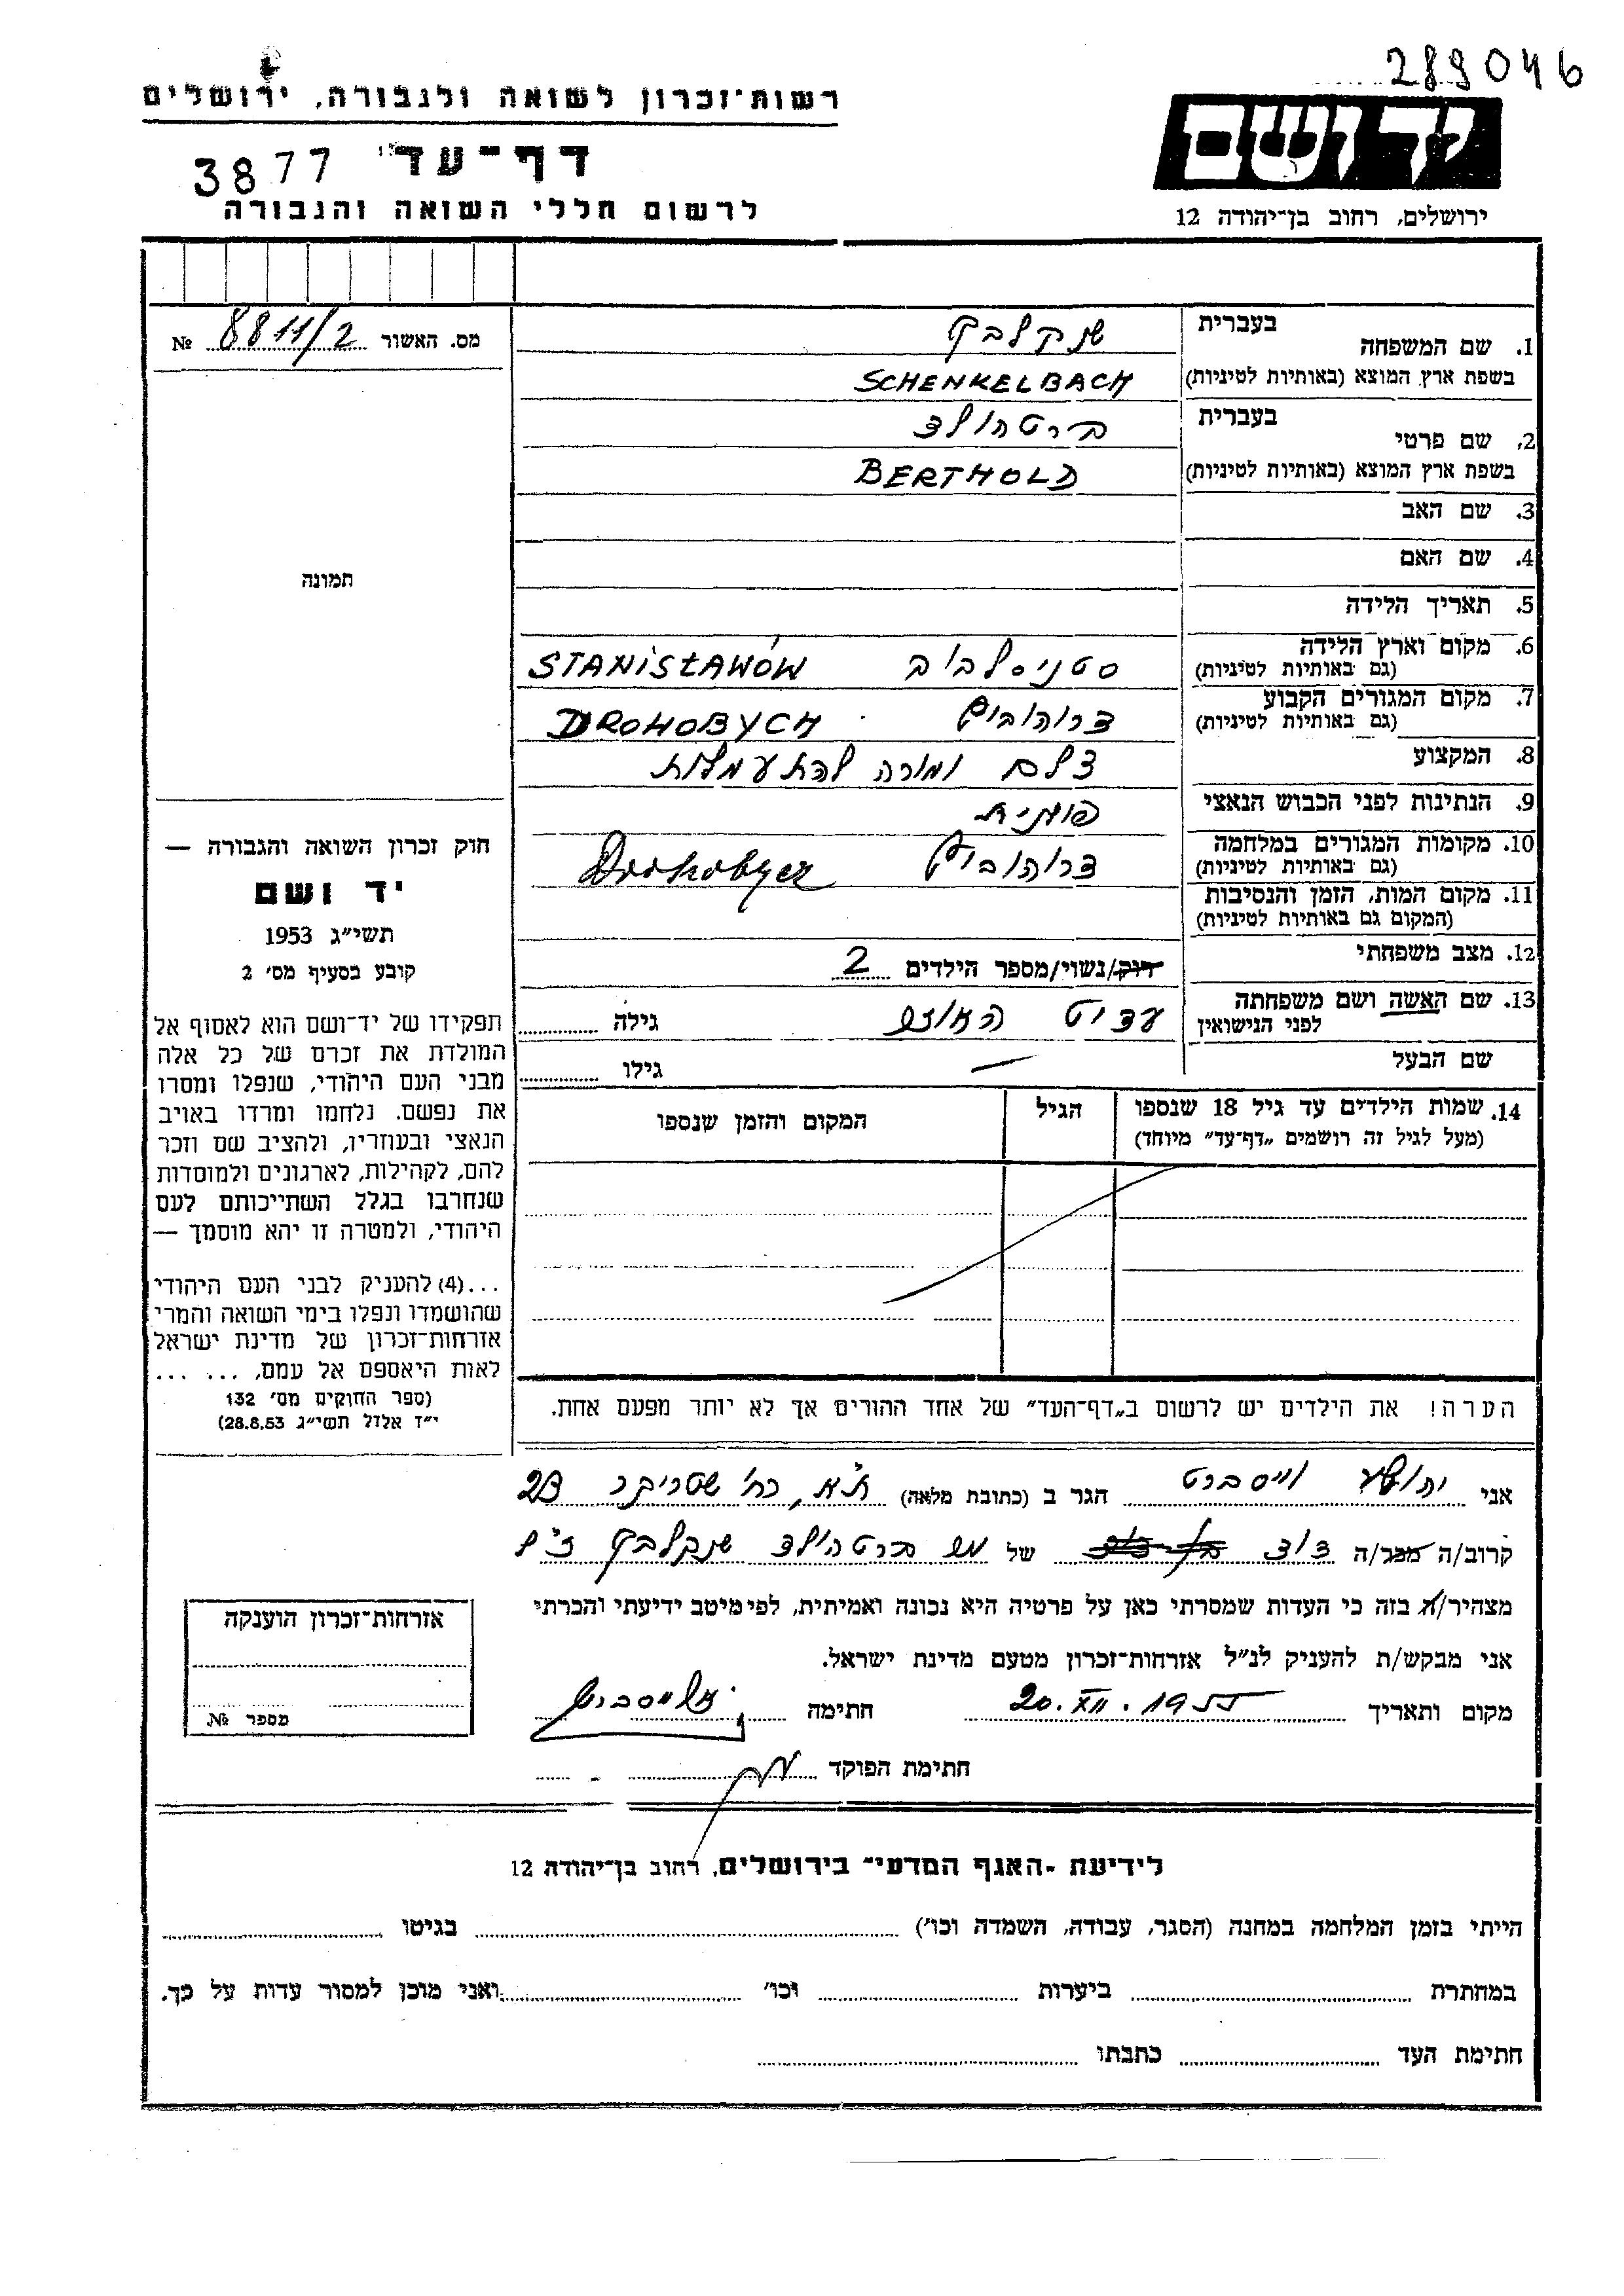 289046
רשות־זכרון לשואה ולגבורה, ירושלים
יד ושם
דף־עד
3877
לרשום חללי השואה והגבורה
ירושלים, רחוב בן־יהודה 12
מס. האשור 8811/2 №
1. שם המשפחה
בעברית שנקלבך
בשפת ארץ המוצא (באותיות לטיניות) SCHENKELBACH
2. שם פרטי
בעברית ברטהולד
בשפת ארץ המוצא (באותיות לטיניות) BERTHOLD
3. שם האב
4. שם האם
תמונה
5. תאריך הלידה
6. מקום וארץ הלידה סטניסלבוב STANISŁAWÓW
(גם באותיות לטיניות)
7. מקום המגורים הקבוע דרוהוביץ DROHOBYCH
(גם באותיות לטיניות)
8. המקצוע צלם ומורה להתעמלות
9. הנתינות לפני הכבוש הנאצי פולנית
10. מקומות המגורים במלחמה דרוהוביץ
(גם באותיות לטיניות)
11. מקום המות, הזמן והנסיבות
(המקום גם באותיות לטיניות)
12. מצב משפחתי רוק/נשוי/מספר הילדים 2
13. שם האשה ושם משפחתה גילה
לפני הנישואין
שם הבעל — גילו
14. שמות הילדים עד גיל 18 שנספו הגיל המקום והזמן שנספו
(מעל לגיל זה רושמים „דף־עד” מיוחד)
הערה! את הילדים יש לרשום ב„דף־העד” של אחד ההורים אך לא יותר מפעם אחת.
חוק זכרון השואה והגבורה —
יד ושם
תשי״ג 1953
קובע בסעיף מס׳ 2
תפקידו של יד־ושם הוא לאסוף אל
המולדת את זכרם של כל אלה
מבני העם היהודי, שנפלו ומסרו
את נפשם. נלחמו ומרדו באויב
הנאצי ובעוזריו, ולהציב שם וזכר
להם, לקהילות, לארגונים ולמוסדות
שנחרבו בגלל השתייכותם לעם
היהודי, ולמטרה זו יהא מוסמך —
...(4) להעניק לבני העם היהודי
שהושמדו ונפלו בימי השואה והמרי
אזרחות־זכרון של מדינת ישראל
לאות היאספם אל עמם, ... ...
(ספר החוקים מס׳ 132
י״ז אלול תשי״ג 28.8.53)
אני יהושע וייסברט הגר ב (כתובת מלאה) ת״א, רח׳ שטריקר 23
קרוב/ה מכר/ה דוד של ברטהולד שנקלבך ז״ל
מצהיר/ה בזה כי העדות שמסרתי כאן על פרטיה היא נכונה ואמיתית, לפי מיטב ידיעתי והכרתי
אני מבקש/ת להעניק לנ״ל אזרחות־זכרון מטעם מדינת ישראל.
מקום ותאריך 20.XII.1955 חתימה
חתימת הפוקד
אזרחות־זכרון הוענקה
מספר №
לידיעת ״האגף המדעי״ בירושלים, רחוב בן־יהודה 12
הייתי בזמן המלחמה במחנה (הסגר, עבודה, השמדה וכו׳) בגיטו
במחתרת ביערות וכו׳ ואני מוכן למסור עדות על כך.
חתימת העד כתבתו